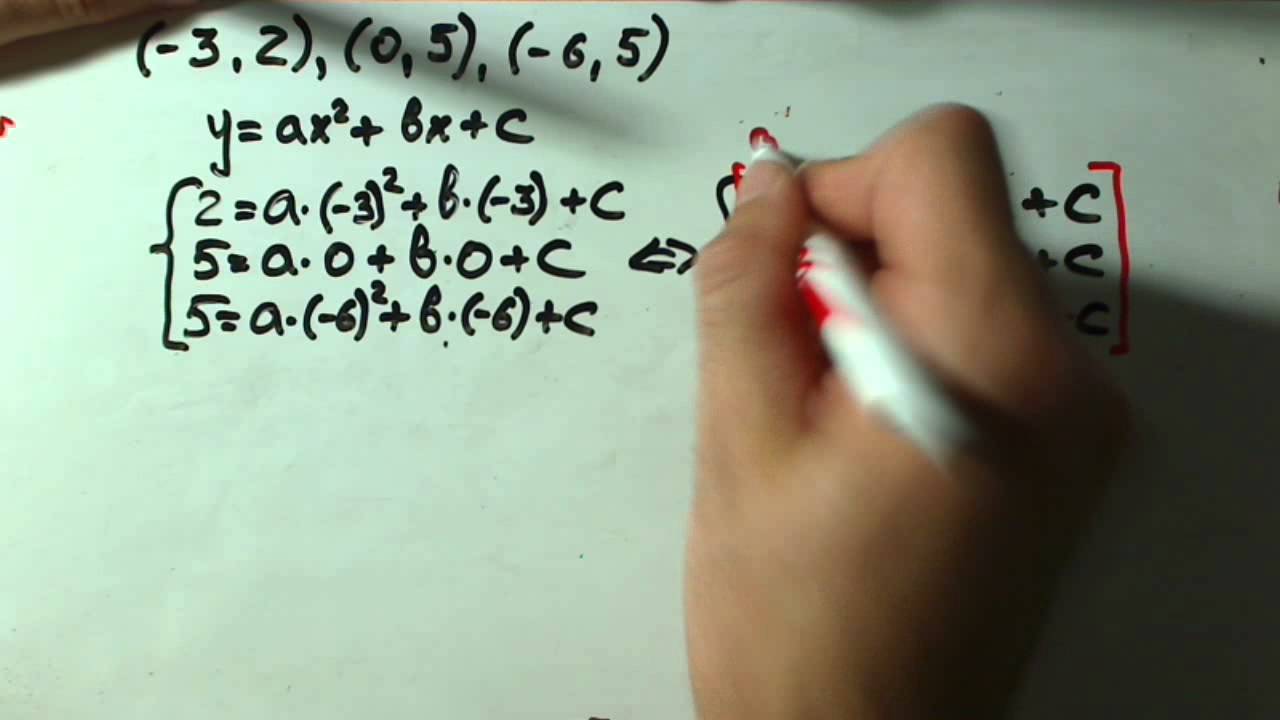 (-3, 2), (0, 5), (-6, 5)
y = ax² + bx + c
2 = a·(-3)² + b·(-3) + c
5 = a·0 + b·0 + c ⇔
5 = a·(-6)² + b·(-6) + c
+ c
+ c
c